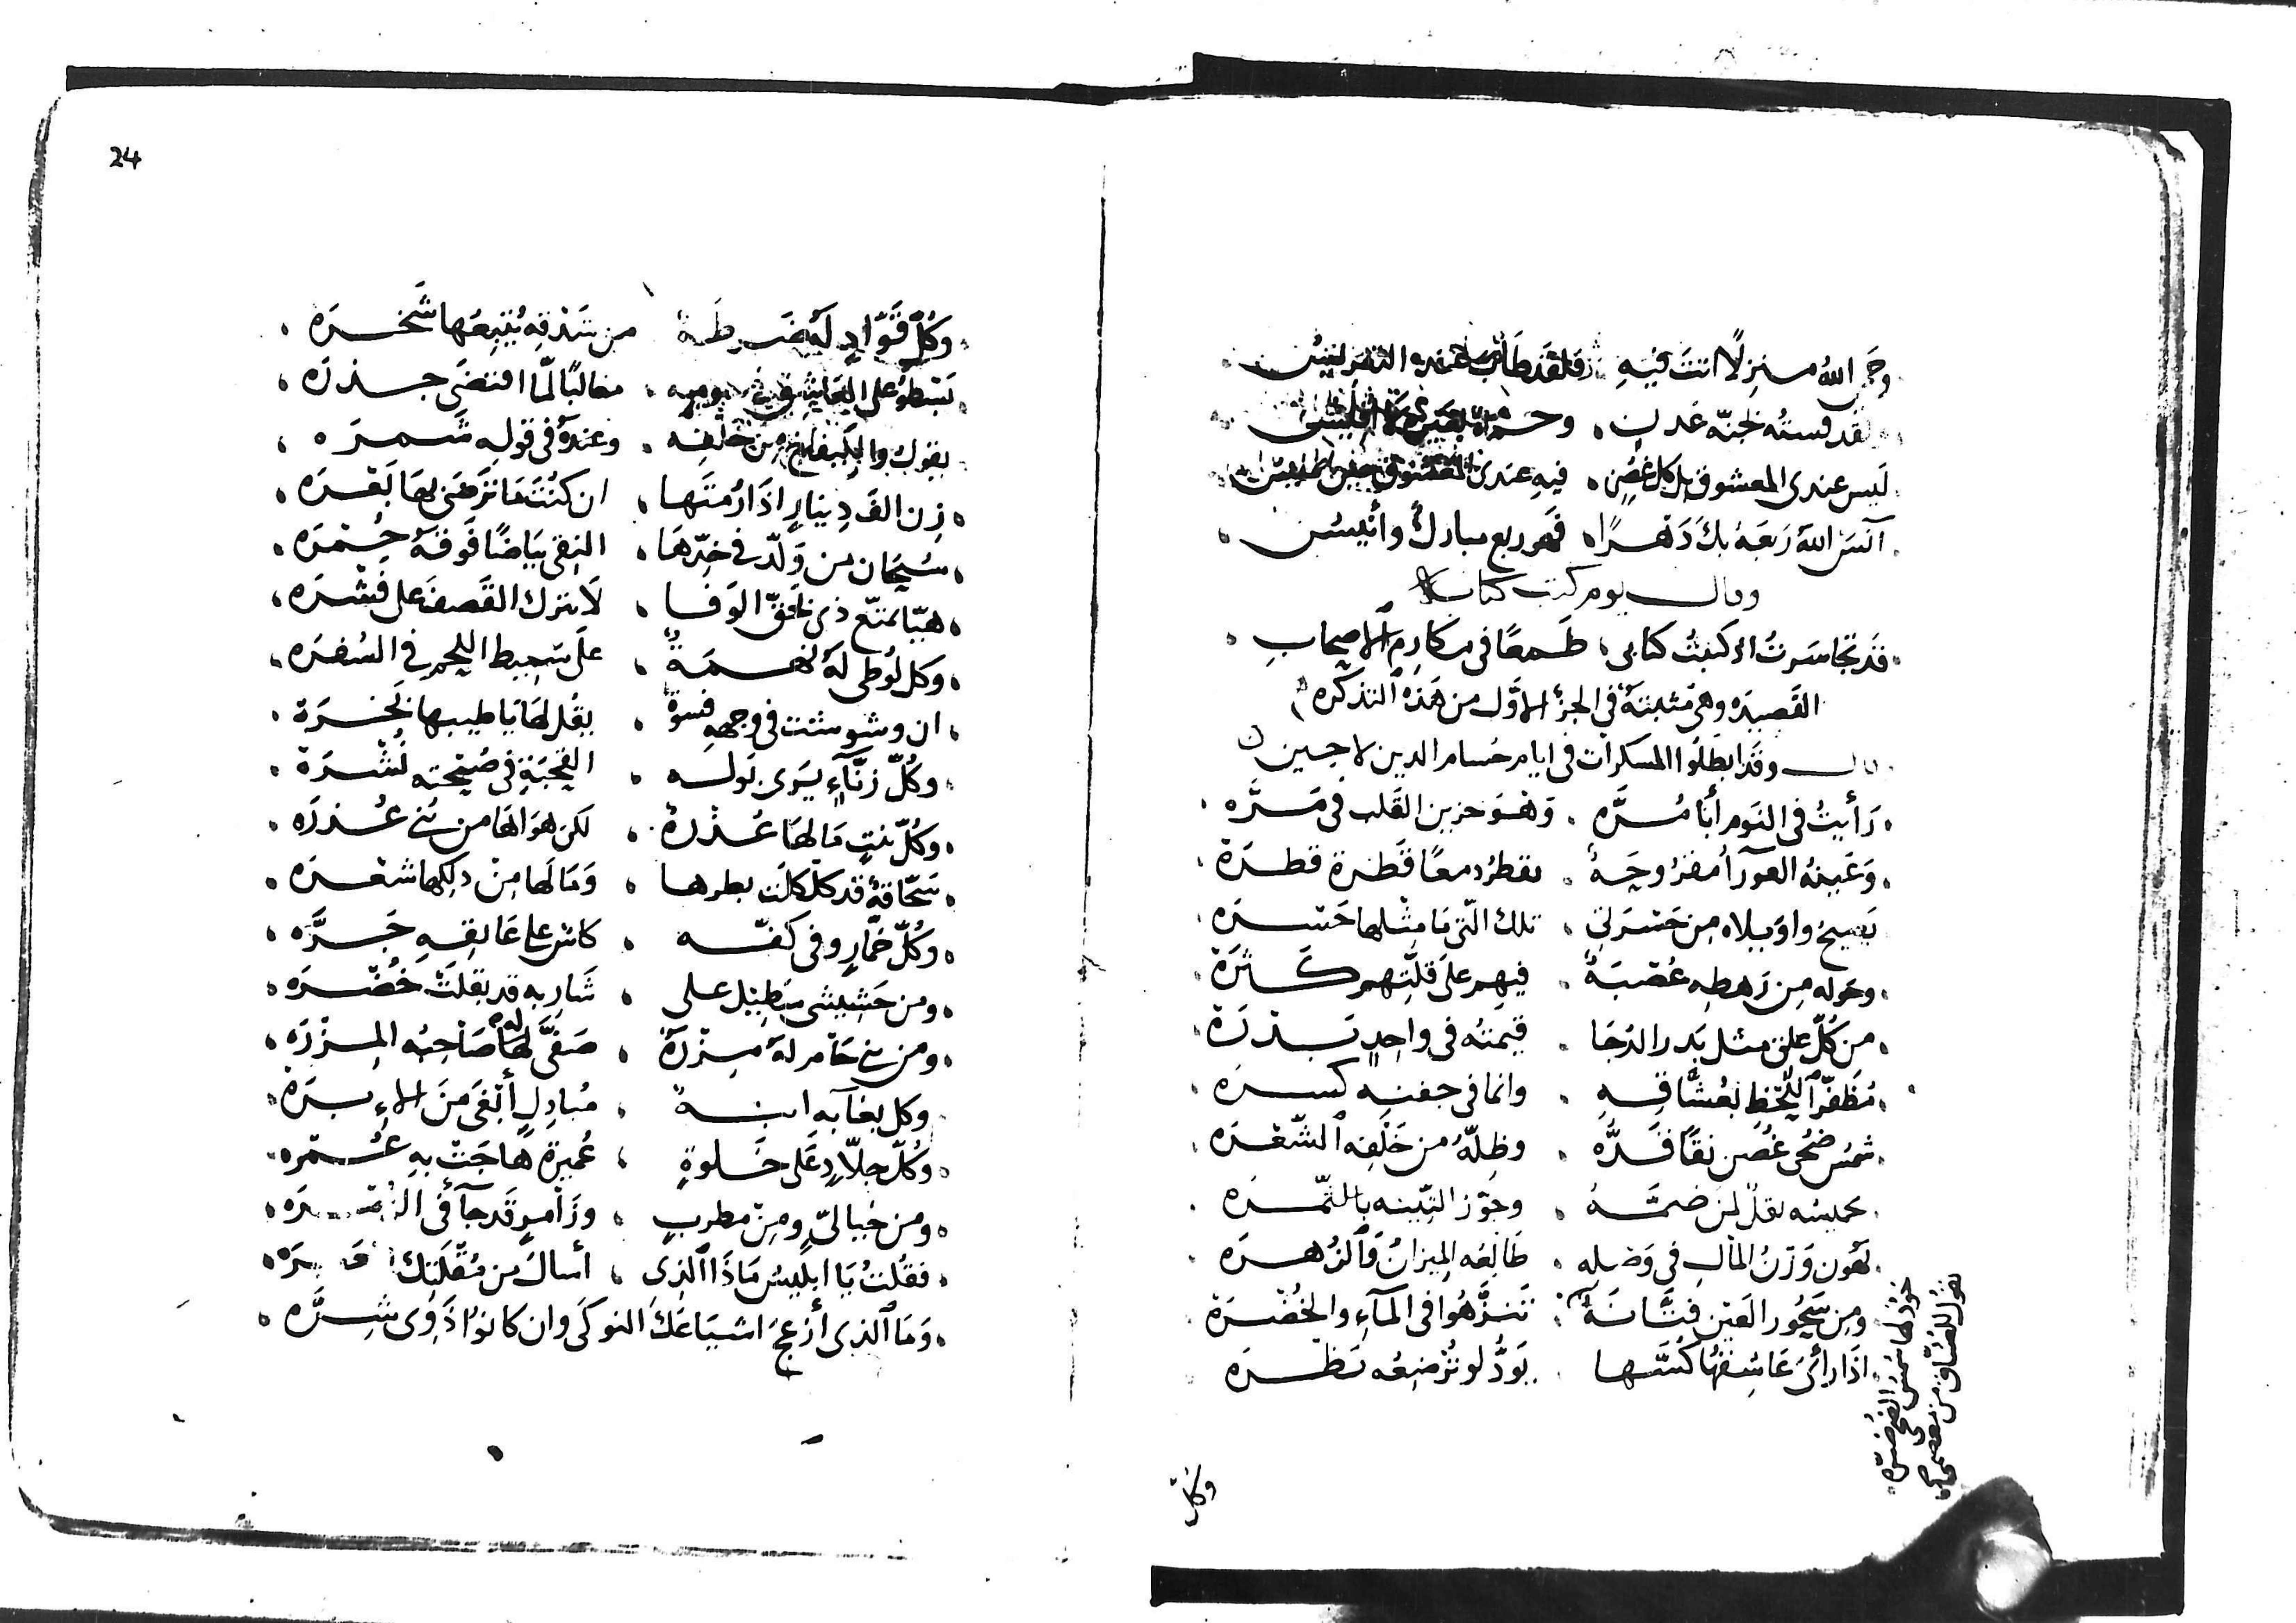 وحمى الله منزلًا انت فيه فلقد طاب عنده التعريس
لقد قسته لجنة عدن وحـ
ليس عندى المعشوق بل كل غصن فيه عندى
آنس الله ربعه بك دهرا فهو ربع مبارك وأنيس
وقال يوم كتب كتاب
قد تجاسرت اذ كتبت كتابى طمعًا فى مكارم الاصحاب
القصيده وهى مثبتة فى الجزء الاول من هذه التذكره
قال وقد ابطلوا المسكرات فى ايام حسام الدين لاجين
رأيت فى النوم أبا مره وهو حزين القلب فى مره
وعينه العورآ مقروحة تقطر دمعًا قطرة قطرة
يصيح واويلاه من حسرتى تلك التى ما مثلها حسره
وحوله من رهطه عصبة فيهم على قلتهم كثرة
من كل علق مثل بدر الدجا قيمته فى واحد بدرة
مظفر اللحظ بعشاقه وانما فى جفنه كسره
شمس ضحى غصن نقا قده وظله من خلفه الشعره
لمن ضمه وجوز التينه بالتمره
يهون وزن المال فى وصله طالعه الميزان والزهره
ومن سحور العين فتانة تنزهوا فى المآء والخضرة
خود لها شمس الضحى ضره
تقول للعشاق من معصمى
اذا رأى عاشقها كسها يود لو ترضعه بظره
وكل
24
وكل قواد له ضرطة من شدقه يتبعها شخره
يسطو على فى يومه مغالبًا لما اقتضى جذره
يقول من خلفه وعنده فى قوله شمره
زن الف دينار اذا رمتها ان كنت ما ترضى بها بعره
سبحان من ولد فى خدها النقى بياضًا فوقه حمره
هيا تمتع ذى تحق الوفا لا يترك القصف على قشره
وكل لوطى له نهمة على سميط اللحم فى السفره
ان وشوشت فى وجهه فسوة يقل لها يا طيبها نخرة
وكل زنآء يرى بوله القحبة فى صبحته نشرة
وكل بنت ما لها عذرة لكن هواها من بنى عذره
سحاقة قد كلكلت بظرها وما لها من دلكها شعره
وكل خمار وفى كفه كاس على عاتقه جره
ومن حشيشى سطيل على شاربه قد بقلت خضره
ومن بنى حام له مزرة صفى لها صاحبه المزره
وكل بغآ به ابنة مبادل أبغى من الابره
وكل جلاد على خلوة عميرة هاجت به عمره
ومن خيالى ومن مطرب وزامر قد جآ فى الزمره
فقلت يا ابليس ماذا الذى أسال من مقلتك
وما الذى أزعج اشياعك النوكى وان كانوا ذوى شره